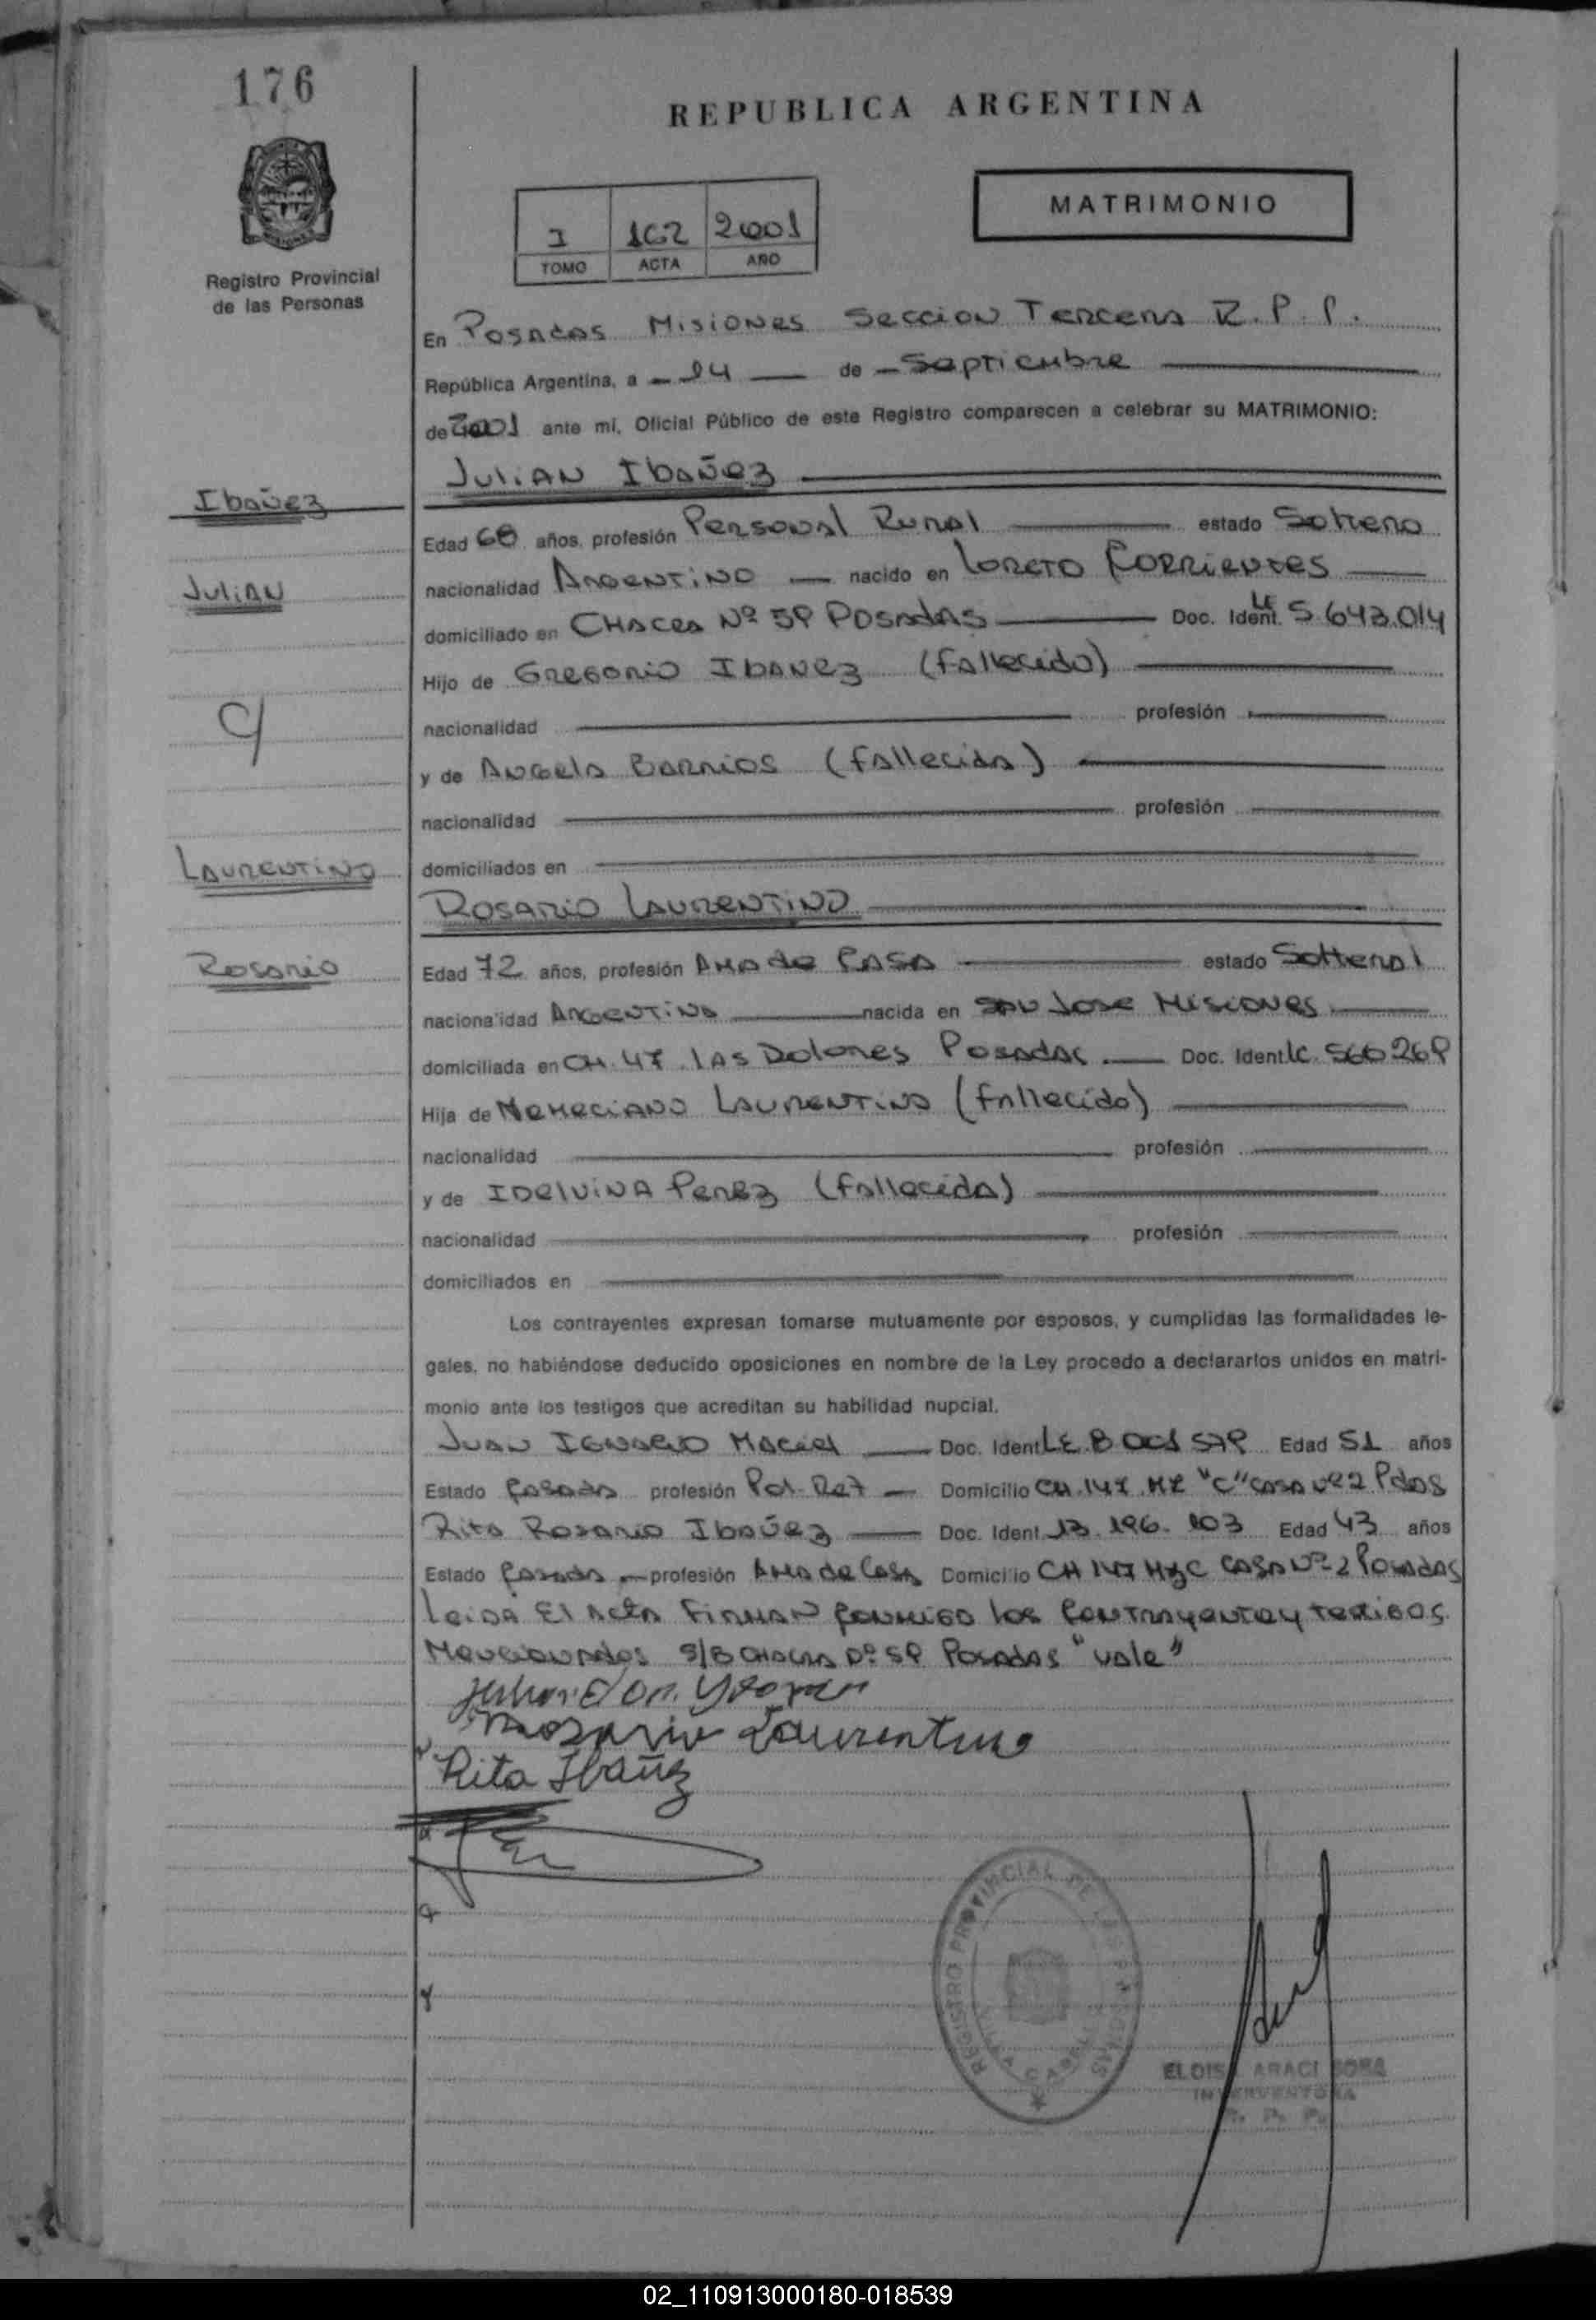 176
REPUBLICA ARGENTINA
MATRIMONIO
I 162 2001
TOMO ACTA AÑO
Registro Provincial
de las Personas
En Posadas Misiones Seccion Tercera R. P. P.
República Argentina, a 14 de Septiembre
de 2001 ante mí, Oficial Público de este Registro comparecen a celebrar su MATRIMONIO:
Julian Ibañez
Ibañez
Edad 68 años, profesión Personal Rural estado Soltero
Julian
nacionalidad Argentino nacido en Loreto Corrientes
domiciliado en Chacra Nº 59 Posadas Doc. Ident. LE 5.643.014
Hijo de Gregorio Ibanez (fallecido)
C/
nacionalidad profesión
y de Angela Barrios (fallecida)
nacionalidad profesión
Laurentino
domiciliados en
Rosario Laurentino
Rosario
Edad 72 años, profesión Ama de Casa estado Soltera
nacionalidad Argentina nacida en San Jose Misiones
domiciliada en CH. 47 Las Dolores Posadas Doc. Ident LC. 566269
Hija de Nemeciano Laurentino (fallecido)
nacionalidad profesión
y de Idelvina Perez (fallecida)
nacionalidad profesión
domiciliados en
Los contrayentes expresan tomarse mutuamente por esposos, y cumplidas las formalidades le-
gales, no habiéndose deducido oposiciones en nombre de la Ley procedo a declararlos unidos en matri-
monio ante los testigos que acreditan su habilidad nupcial.
Juan Ignacio Maciel Doc. Ident LE. Edad 51 años
Estado Casado profesión Pol. Ret Domicilio CH. 147 MZ "C" casa Nº 2 Pdas
Rita Rosario Ibañez Doc. Ident. 13.196.103 Edad 43 años
Estado Casada profesión Ama de Casa Domicilio CH 147 Mz C casa Nº 2 Posadas
Leida El Acta Firman conmigo los contrayentes y testigos
Mencionados S/B Chacra Nº 59 Posadas "vale"
Rosario Laurentino
Rita Ibañez
REGISTRO PROVINCIAL DE LAS PERSONAS
ELOISA ARACI SOSA
INTERVENTORA
R. P. P.
02_110913000180-018539